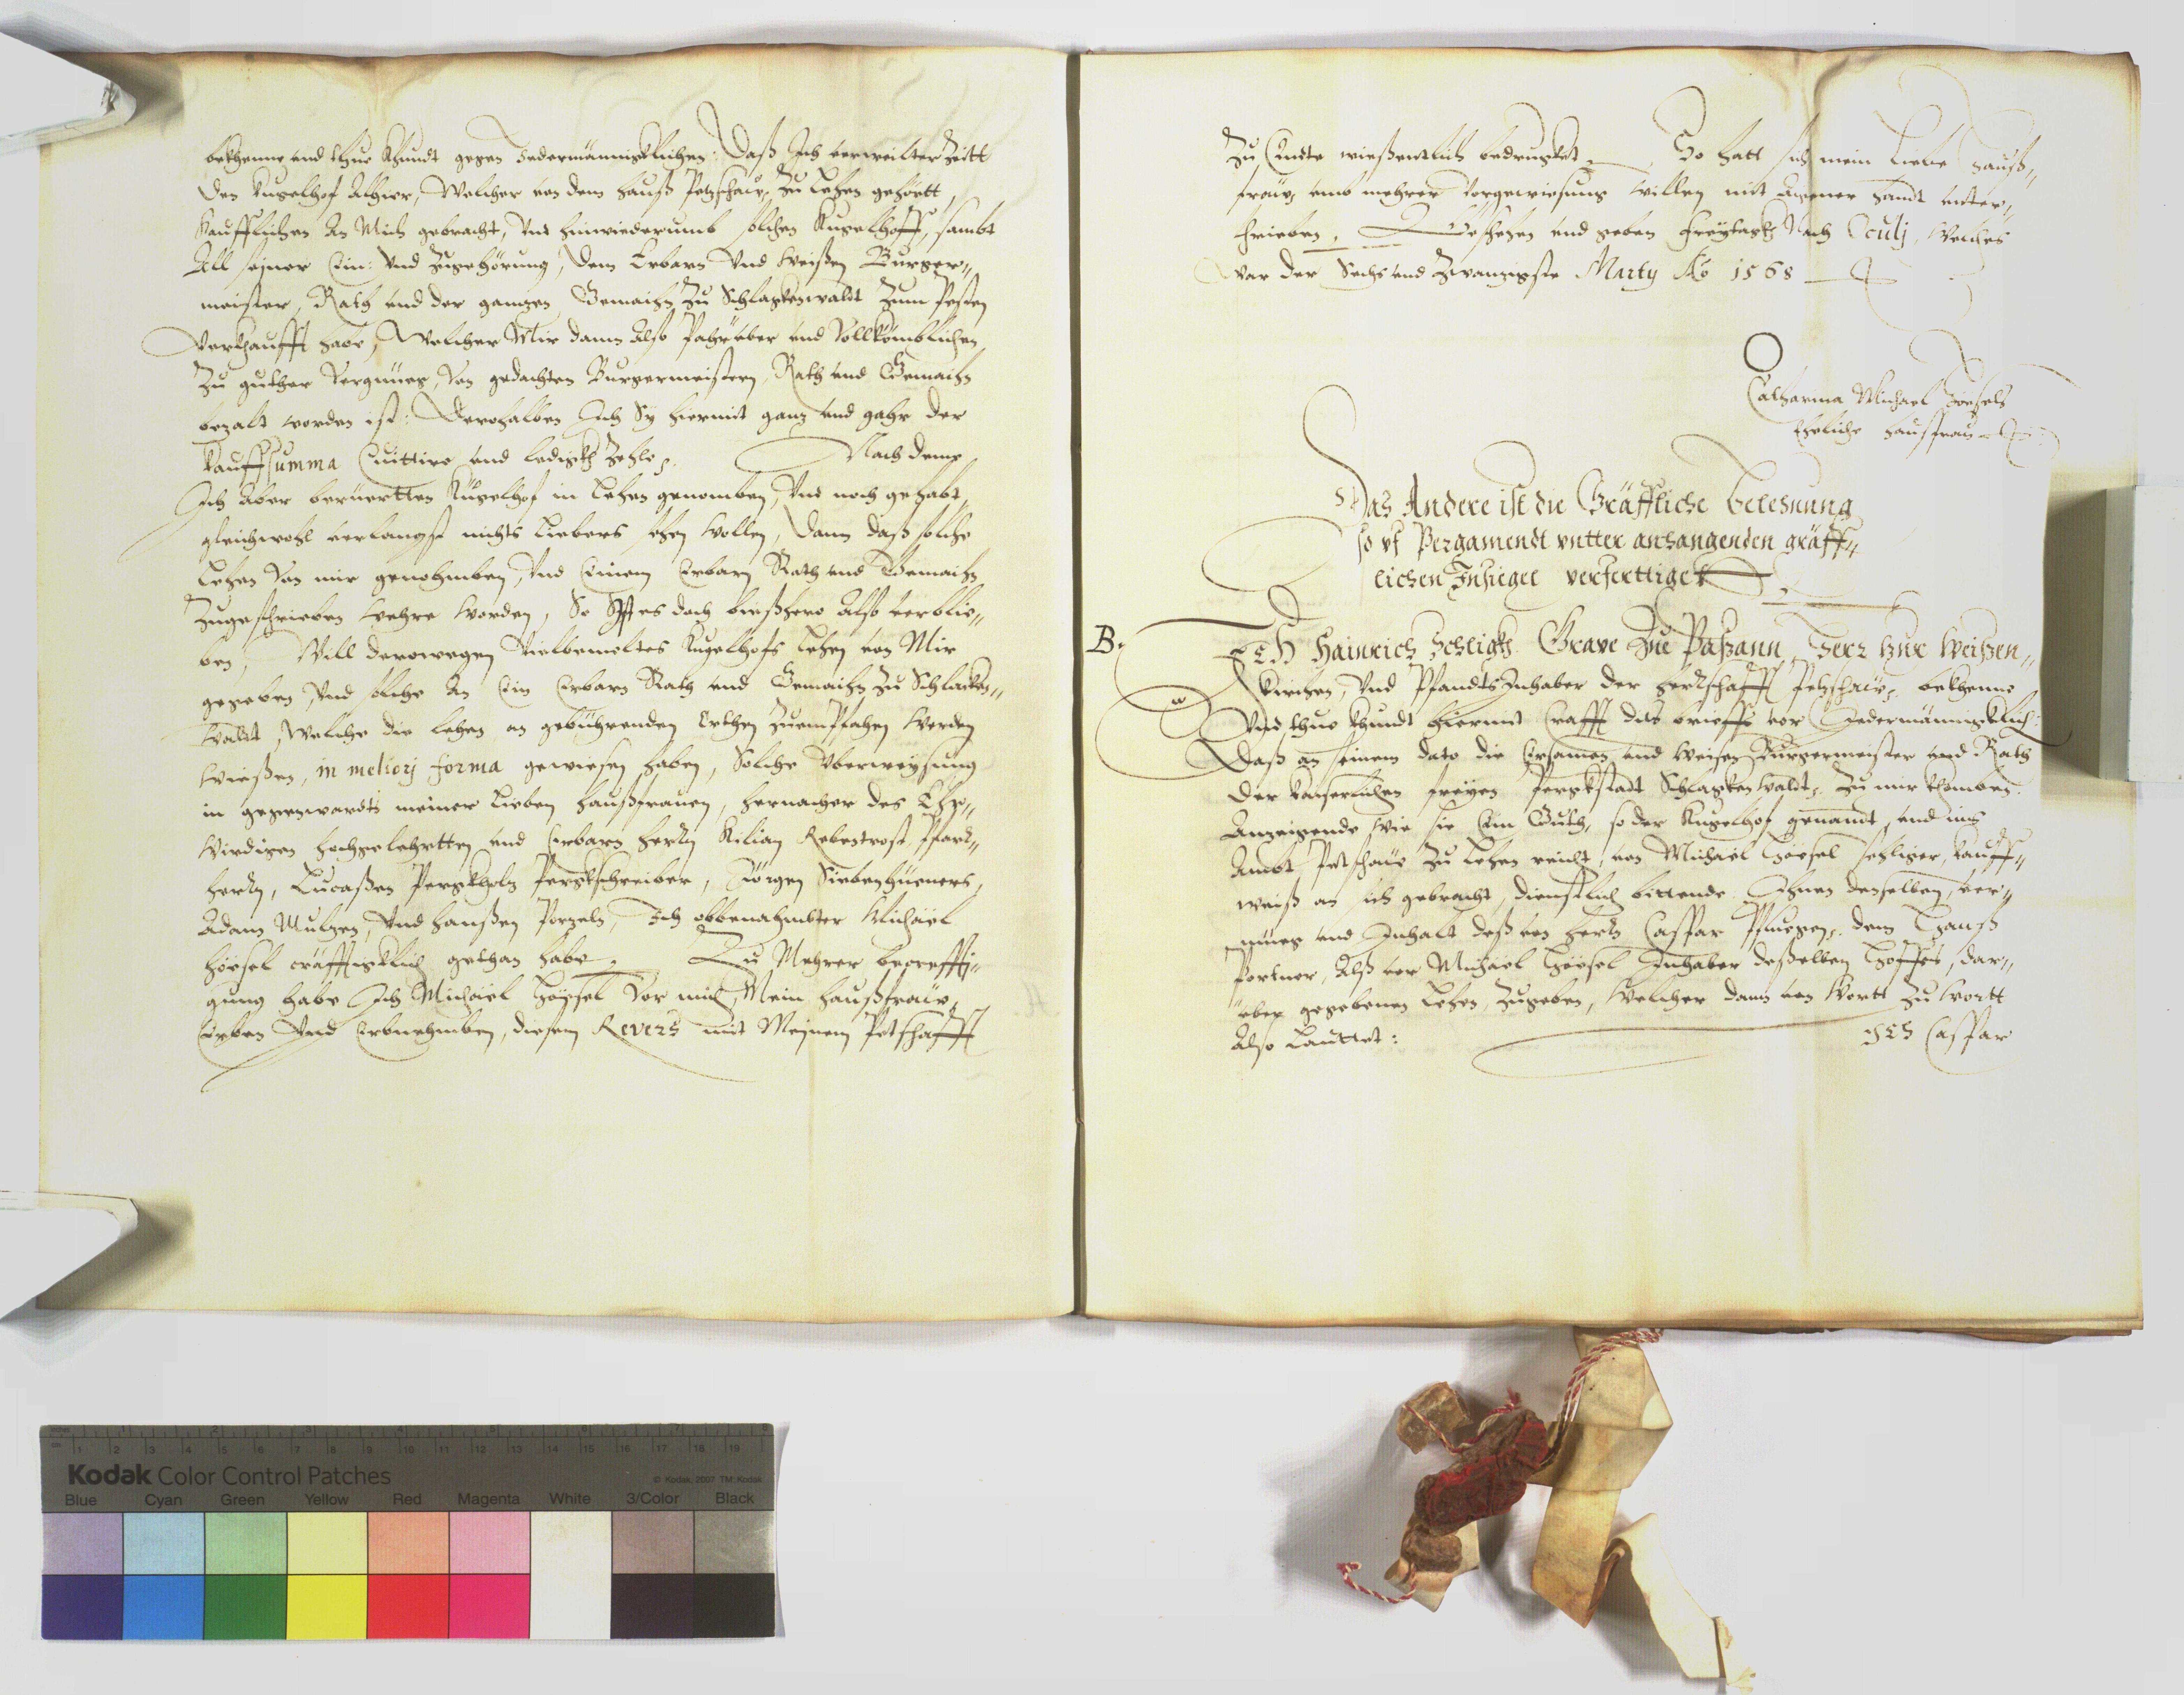 bekhenne und thue Khundt gegen Jedermännigklichen: Daß Ich verweilter Zeitt
den Kugelhof Alhier, Welcher von dem Hauß Petschaw, zu Lehen gehörtt,
Kaufflichen An Mich gebracht, Und hinwiederumb solchen Kugelhoff, sambt
All seiner Ein: Und Zugehörung, Dem Erbarn Und Weißen Burger„
meister, Rath und der gantzen Gemaihn Zu Schlaggenwaldt Zum Pesten
Verkhaufft habe, Welcher Mir dann Also Pahr über und Vollkomblichen
Zu guther Vergnüeg, Von gedachten Burgermeistern, Rath und Gemaihn
bezalt worden ist: Derohalben Ich Sy hiermit ganz und gahr der
Kauffsumma Quittire und ledigk Zehle. Nach deme
Ich Aber berüertten Kugelhof in Lehen genomben, Und noch gehabt,
gleichwohl verlangst nichts Liebers sehen Wollen, Dann daß solche
Lehen Von mir genohmben, Und Einem Erbarn Rath und Gemaihn
Zugeschrieben Wehre Worden, So Ist es doch bießhero Also verblie„
ben, Will derowegen Vielbemeltes Kugelhofs Lehen von Mir
gegeben, Und solche An Ein Erbarn Rath und Gemaihn Zu Schlacken„
Waldt, Welche die Lehen an gebührenden Orthen Zuempfahen Werden
Wießen, in meliorj forma gewiesen haben, Solche Uberweysung
in gegenwardts meiner Lieben Haußfrauen, hernacher des Ehr„
Wirdigen Hochgelehrtten und Erbarn Herrn Kilian Rebentrost Pfarr„
herrn, Lucaßen Pergkholz Pergkschreiber, Jörgen Siebenhüeners,
Adam Mulzen, Und Hanßen Porzeln, Ich obbenahmbter Michäel
Höesel cräfftigklich gethan habe. Zu Mehrer becrefftj„
gung habe Ich Michäel Höesel Vor mich, Mein Haußfraw,
Erben Und Erbnehmben, diesen Revers mit Meinem Petschafft
Zu Endte wießentlich bedrucket. So hatt sich mein Liebe Hauß„
fraw, umb mehrer Vergewiesung willen mit Aigener Handt unter„
schrieben. Geschehen und geben Freytagk Nach Oculj, Welches
War der Sechs und Zwanzigste Marty Ao 1568
Catharina Michael Höesels
Eheliche Hausfrau
Das Andere ist die Gräffliche Belehnung
so uf Pergamendt untter anhangenden gräff„
lichen Insiegel verferttiget
B.
ICH Hainrich Schligk Grave Zue Paßaun, Herr Zur Weißen„
kirchen, Und Pfandts Inhaber der Herrschafft Petschaw, bekhenne
Und thue khundt hiermit Crafft dits brieffs vor Jedermännigklich:
Daß an einem dato die Ersamen und Weisen Burgermeister und Rath
Der Kaiserlichen freyen Pergkstadt Schlaggenwaldt, Zu mir khomben
Anzeigende Wie sie Ein Guth, so der Kugelhof genandt, und ins
Ambt Petschaw Zu Lehen reicht, von Michäel Höesel sehliger, Kauff„
weiß an sich gebracht, dienstlich bittende Ihnen denselben, ver„
müeg und Inhalt deß von Herrn Casspar Pfluegen, dem Hanß
Fortner, Alß vor Michäel Höesel Inhaber deßelben Hoffes, dar„
über gegebenen Lehen, Zugeben, Welcher dann von Wortt Zu Wortt
Also Lauttet:
ICH Casspar
Kodak Color Control Patches
© Kodak, 2007 TM: Kodak
Blue Cyan Green Yellow Red Magenta White 3/Color Black